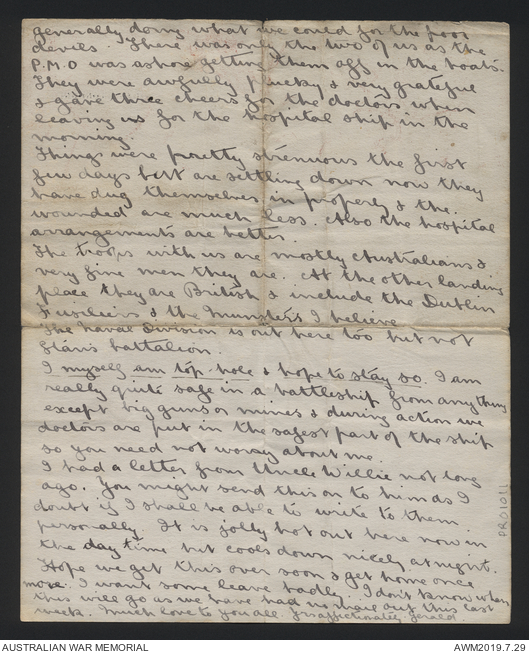 generally doing what we could for the poor
devils. There was only the two of us as the
P.M.O was ashore getting them off in the boats.
They were awfully plucky & very grateful
& gave three cheers for the doctors when
leaving us for the hospital ship in the
morning.
Things were pretty strenuous the first
few days but are settling down now they
have dug themselves in properly & the
wounded are much less. Also the hospital
arrangements are better.
The troops with us are mostly Australians &
very fine men they are. At the other landing
place they are British & include the Dublin
Fusiliers & the Munsters I believe
The Naval Division is out here too but not
battalion.
I myself am top hole & hope to stay so. I am
really quite safe in a battleship from anything
except big guns or mines & during action we
doctors are put in the safest part of the ship
so you need not worry about me.
I had a letter from Uncle Willie not long
ago. You might send this on to him as I
doubt if I shall be able to write to them
personally. It is jolly hot out here now in
the day time but cools down nicely at night.
Hope we get this over soon & get home once
more. I want some leave badly. I don't know when
this will go as we have had no mail out this last
week. Much love to you all. Yr affectionately Gerald.
PR01011
AUSTRALIAN WAR MEMORIAL
AWM2019.7.29